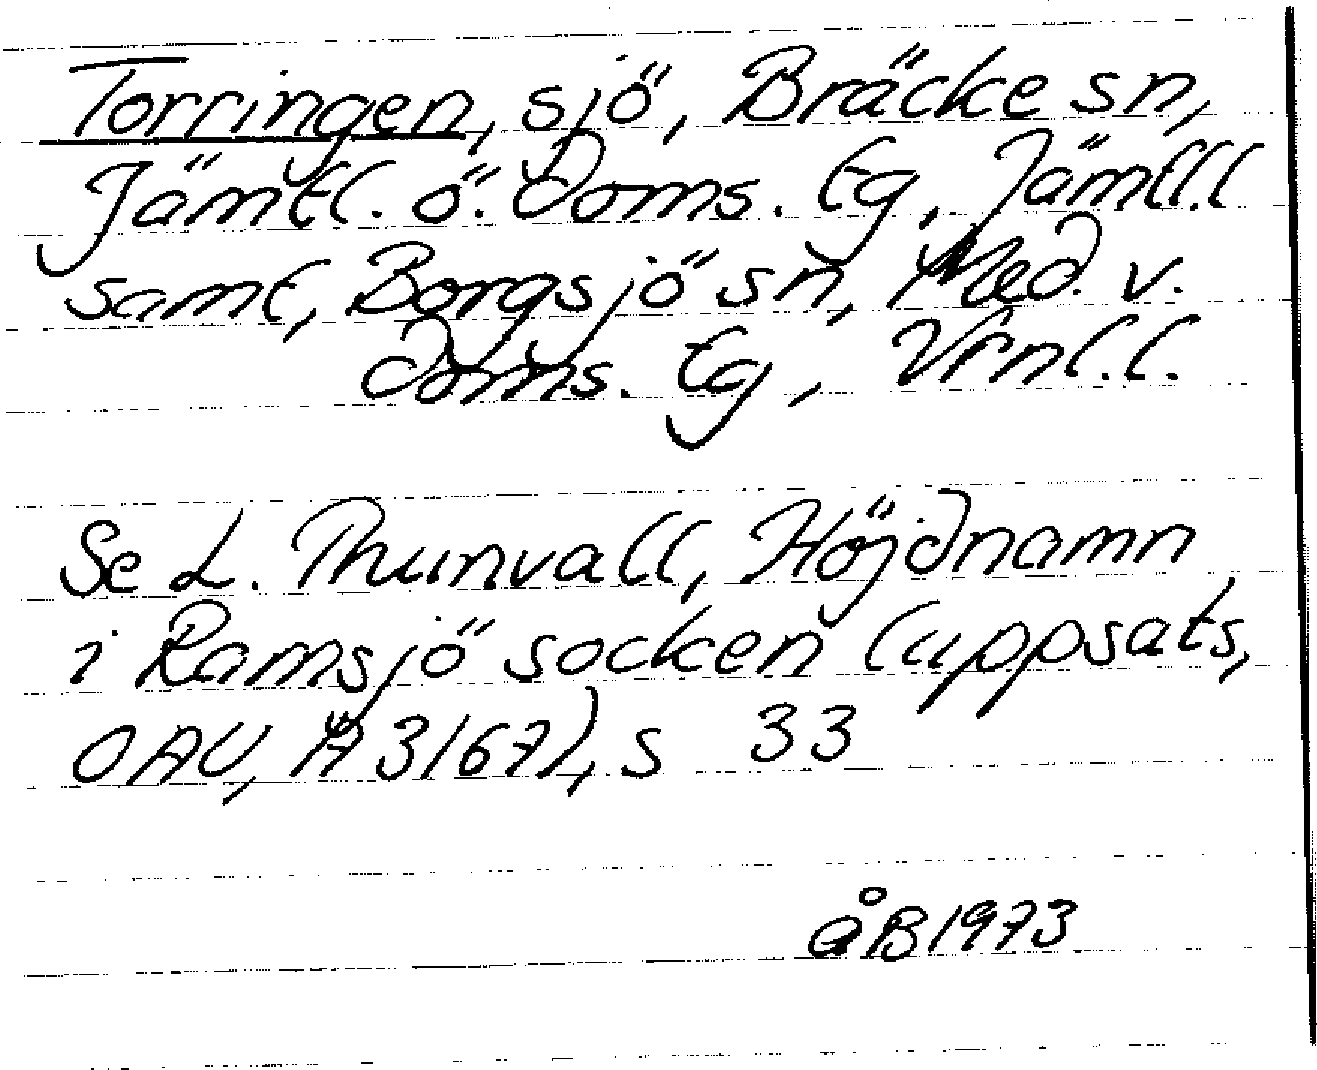 Torringen, sjö, Bräcke sn,
Jämtl. ö. Doms. tg, Jämtl.l
samt, Borgsjö sn, Med. v.
doms. tg, Vrnl.l.
Se L. Thunvall, Höjdnamn
i Ramsjö socken (uppsats,
OAU, Ä 3167), s 33
åB 1973